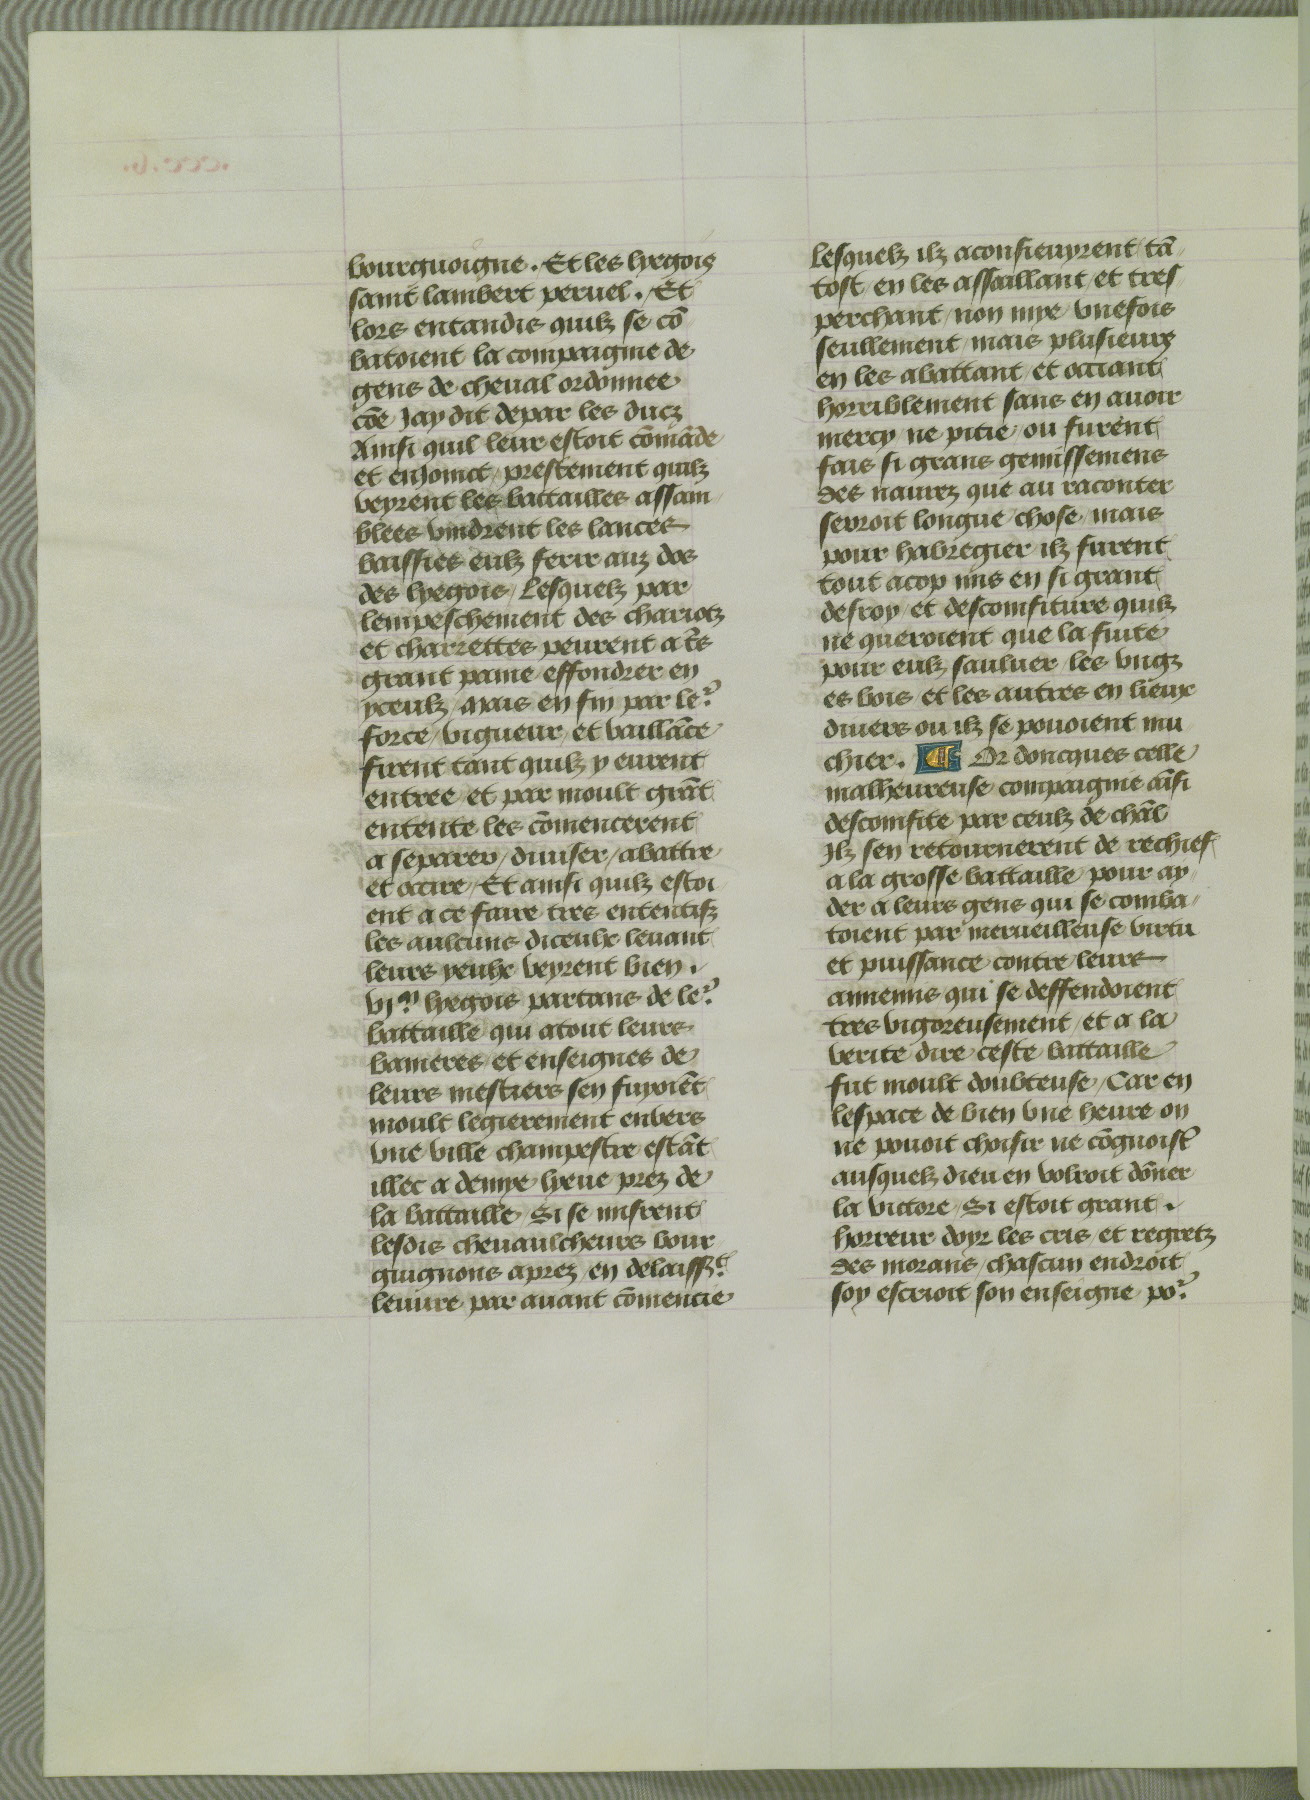 bourguoigne. Et les lyegois
saint lambert peruel. Et
lors entandis quilz se cõ
batoient la compaignie de
gens de cheual ordonnee
cõe Jay dit depar les ducz
Ainsi quil leur estoit cõmãde
et enjoinct / prestement quilz
veyrent les battailles assam
blees vindrent les lances
baissies eulz ferir auz dos
des lyegois / Lesquelz par
lempeschement des chariotz
et charrettes peurent a t̃s
grant paine effondrer en
yceulz / Mais en fin par le᷑
force / vigueur / et vaillãce
firent tant quilz y eurent
entree et par moult grãt
entente les cõmencerent
a separer / diuiser / abattre
et occire / Et ainsi quilz estoi
ent a ce faire tres ententifz
les aulcuns diceulx leuant
leurs yeulx veyrent bien .
vjᵐ lyegois partans de le᷑
battaille qui atout leurs
banieres / et enseignes de
leurs mestiers sen fuyoiẽt
moult legierement enuers
vne ville champestre estãt
illec a demye lyeue prez de
la battaille / Si se misrent
lesdis cheuaulcheurs bour
guignons aprez / en delaissᵗ
leuure par auant cõmencie
lesquelz ilz aconsieuyrent tã
tost / en les assaillant et tres
perchant / non mye vnefois
seullement / mais plusieurs
en les abattant / et occiant
horriblement sans en auoir
mercy ne pitie / ou furent
fais si grans gemissemens
des naurez que au raconter
seroit longue chose / mais
pour habregier ilz furent
tout acop mis en si grant
desroy / et desconfiture quilz
ne queroient que la fuite
pour eulz sauluer / les vngz
es bois / et les autres en lieux
diuers ou ilz se pouoient mu
chier . Or doncques celle
malheureuse compaignie aĩsi
desconfite par ceulz de chãl
Ilz sen retournerent de rechief
a la grosse battaille pour ay
der a leurs gens qui se comba
toient par merueilleuse virtu
et puissance contre leurs
annemis qui se deffendoient
tres vigoreusement / et a la
verite dire ceste battaille
fut moult doubteuse / Car en
lespace de bien vne heure on
ne pouoit choisir ne cõgnoist᷑
ausquelz dieu en volroit dõner
la victore / Si estoit grant .
horreur doyr les cris / et regretz
des morans / chascun endroit
soy escrioit son enseigne / po᷑